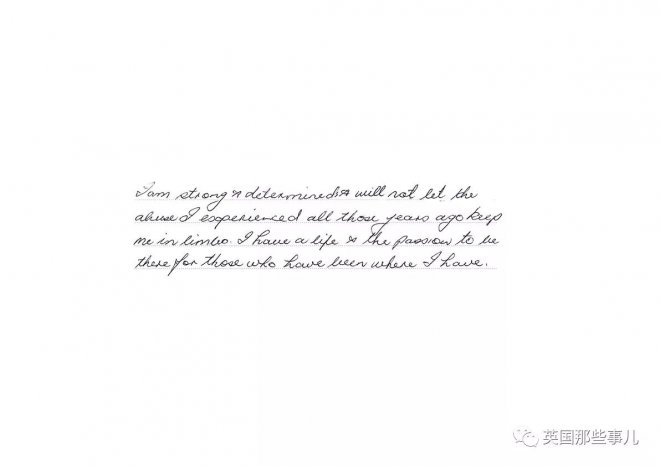 I am strong & determined & will not let the
abuse I experienced all those years ago keep
me in limbo. I have a life & the passion to be
there for those who have been where I have.
英国那些事儿